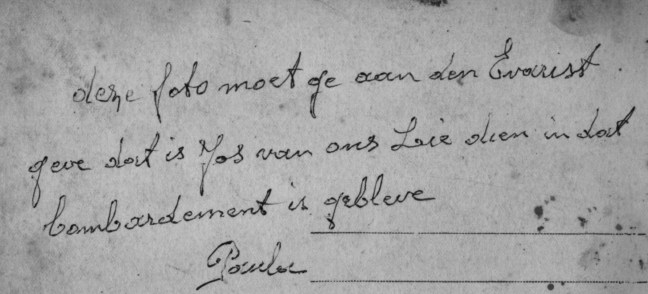 deze foto moet ge aan den Evarist.
geve dat is Jos van ons Lie dien in dat
bombardement is gebleve
Paula